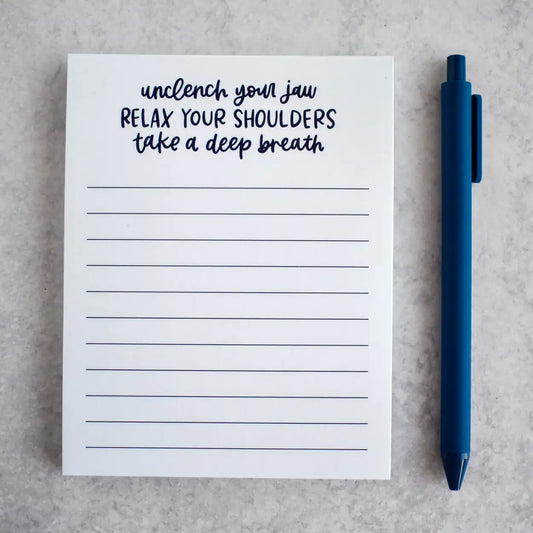 unclench your jaw
RELAX YOUR SHOULDERS
take a deep breath